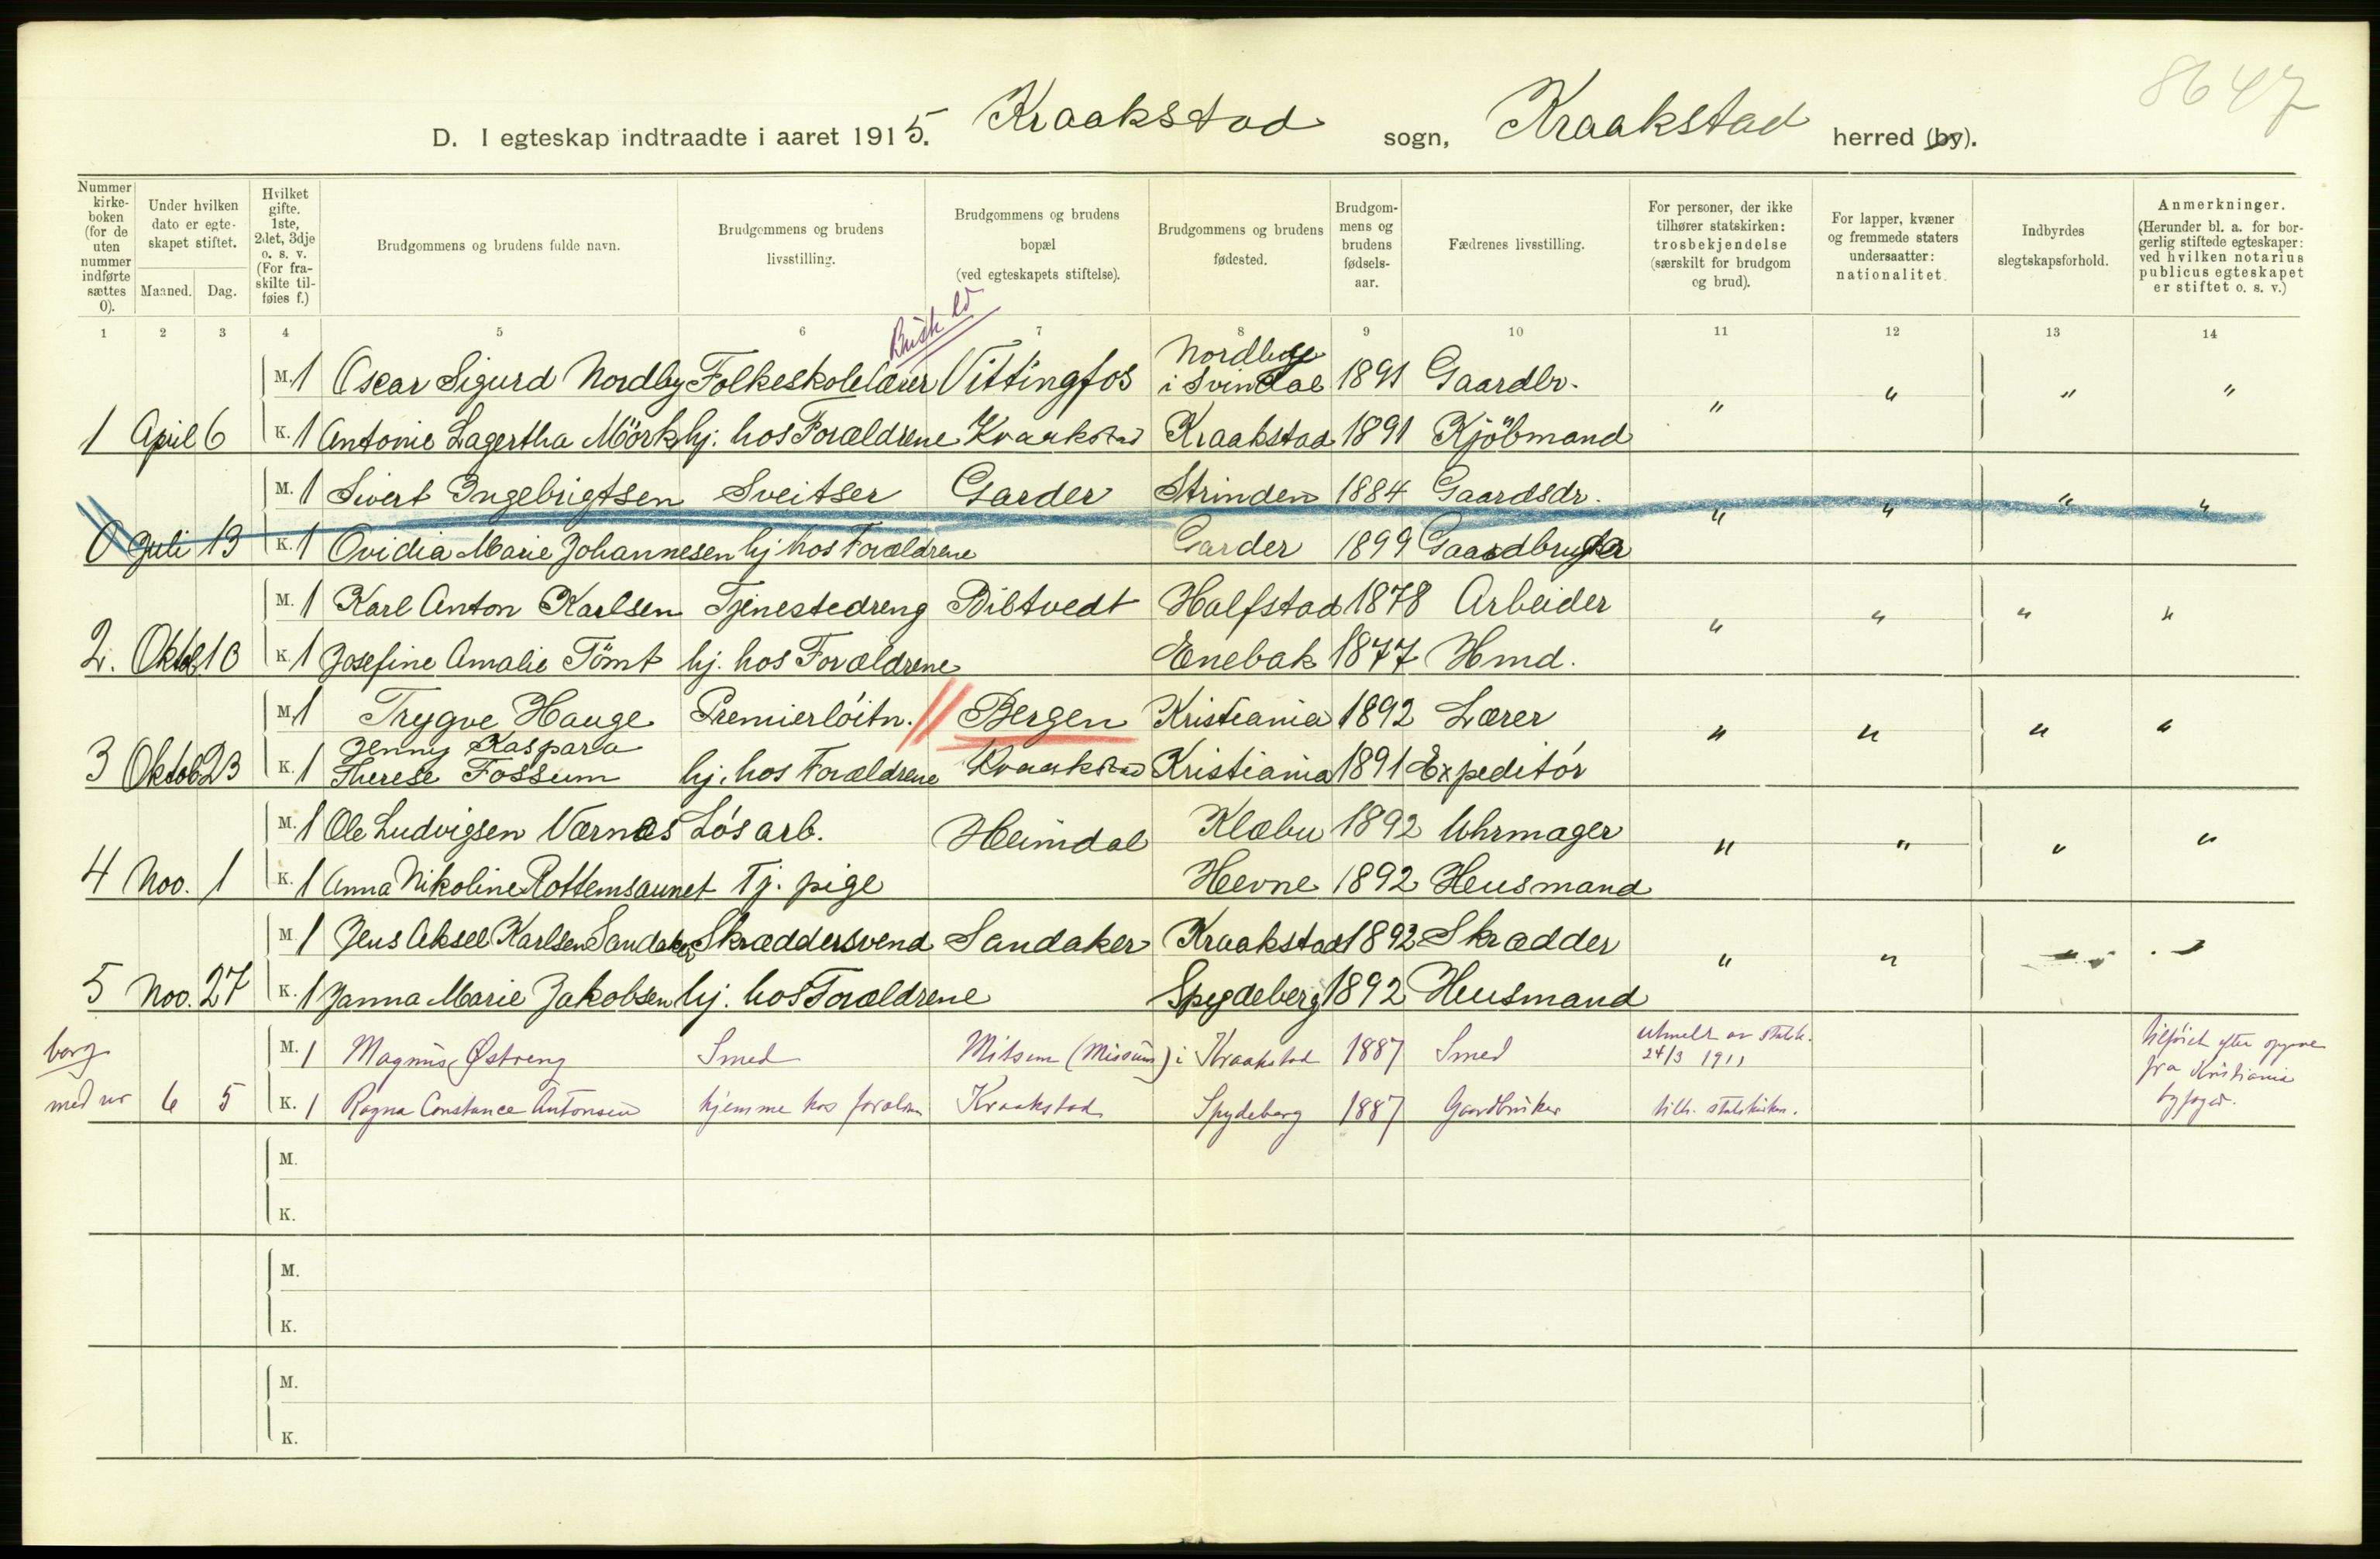 8647
D. I egteskap indtraadte i aaret 1915. Kraakstad sogn, Kraakstad herred (by).
Nummer kirkeboken (for de uten nummer indførte sættes 0).
Under hvilken dato er egteskapet stiftet.
Maaned. Dag.
Hvilket gifte. 1ste, 2det, 3dje o. s. v. (For fraskilte tilføies f.)
Brudgommens og brudens fulde navn.
Brudgommens og brudens livsstilling.
Brudgommens og brudens bopæl (ved egteskapets stiftelse).
Brudgommens og brudens fødested.
Brudgommens og brudens fødselsaar.
Fædrenes livsstilling.
For personer, der ikke tilhører statskirken: trosbekjendelse (særskilt for brudgom og brud).
For lapper, kvæner og fremmede staters undersaatter: nationalitet.
Indbyrdes slegtskapsforhold.
Anmerkninger. (Herunder bl. a. for borgerlig stiftede egteskaper: ved hvilken notarius publicus egteskapet er stiftet o. s. v.)
1 2 3 4 5 6 7 8 9 10 11 12 13 14
M. 1 Oscar Sigurd Nordby Folkeskolelærer Vittingfos Nordbye i Svindal 1891 Gaardbr. " " " "
1 April 6 K. 1 Antonie Lagertha Mörk hj. hos Forældrene Kraakstad Kraakstad 1891 Kjöbmand
M. 1 Sivert Ingebrigtsen Sveitser Garder Strinden 1884 Gaardsdr. " " " "
0 Juli 13 K. 1 Ovidia Marie Johannesen hj hos Forældrene Garder 1899 Gaardbruger
M. 1 Karl Anton Karlsen Tjenestedreng Bibtvedt Halfstad 1878 Arbeider " " " "
2. Oktob. 10 K. 1 Josefine Amalie Tömt hj. hos Forældrene Enebak 1877 Hmd.
M. 1 Trygve Hauge Premierlöitn. Bergen Kristiania 1892 Lærer " " " "
3 Oktob 23 K. 1 Jenny Kaspara Therese Fossum hj. hos Forældrene Kraakstad Kristiania 1891 Expeditör
M. 1 Ole Ludvigsen Værnæs Lós arb. Heimdal Klæbu 1892 Uhrmager " " " "
4 Nov. 1 K. 1 Anna Nikoline Rottemsaunet Tj. pige Hevne 1892 Husmand
M. 1 Jens Aksel Karlsen Sandaker Skræddersvend Sandaker Kraakstad 1892 Skrædder " "
5 Nov. 27 K. 1 Janna Marie Jakobsen hj. hos Forældrene Spydeberg 1892 Husmand
borg. M. 1 Magnus Østreng Smed Mitsum (Missum) i Kraakstad 1887 Smed utmeldt av statsk. 24/3 1911 tilföiet efter opgave fra Kristiania byfoged.
6 5 K. 1 Ragna Constance Antonsen hjemme hos foreldr. Kraakstad Spydeberg 1887 Gaardbruker tilh. statskirken.
M.
K.
M.
K.
M.
K.